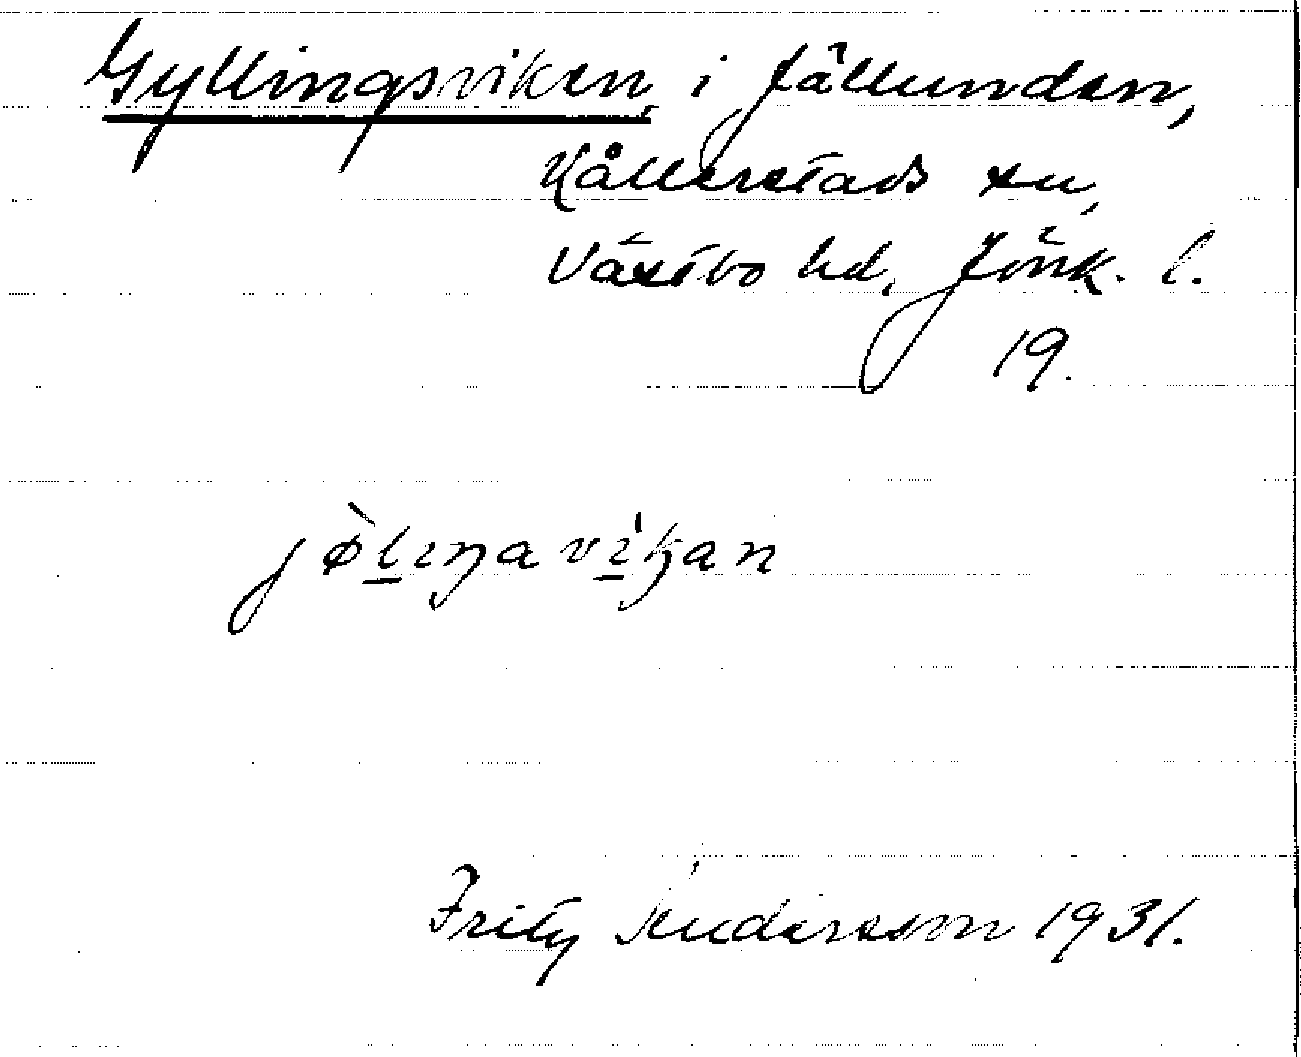 Gyllingsviken, i Jällunden,
Kållerstads sn,
Västbo hd, Jönk. l.
19.
jø̀lıŋavı̀kan
Fritz Andersson 1931.